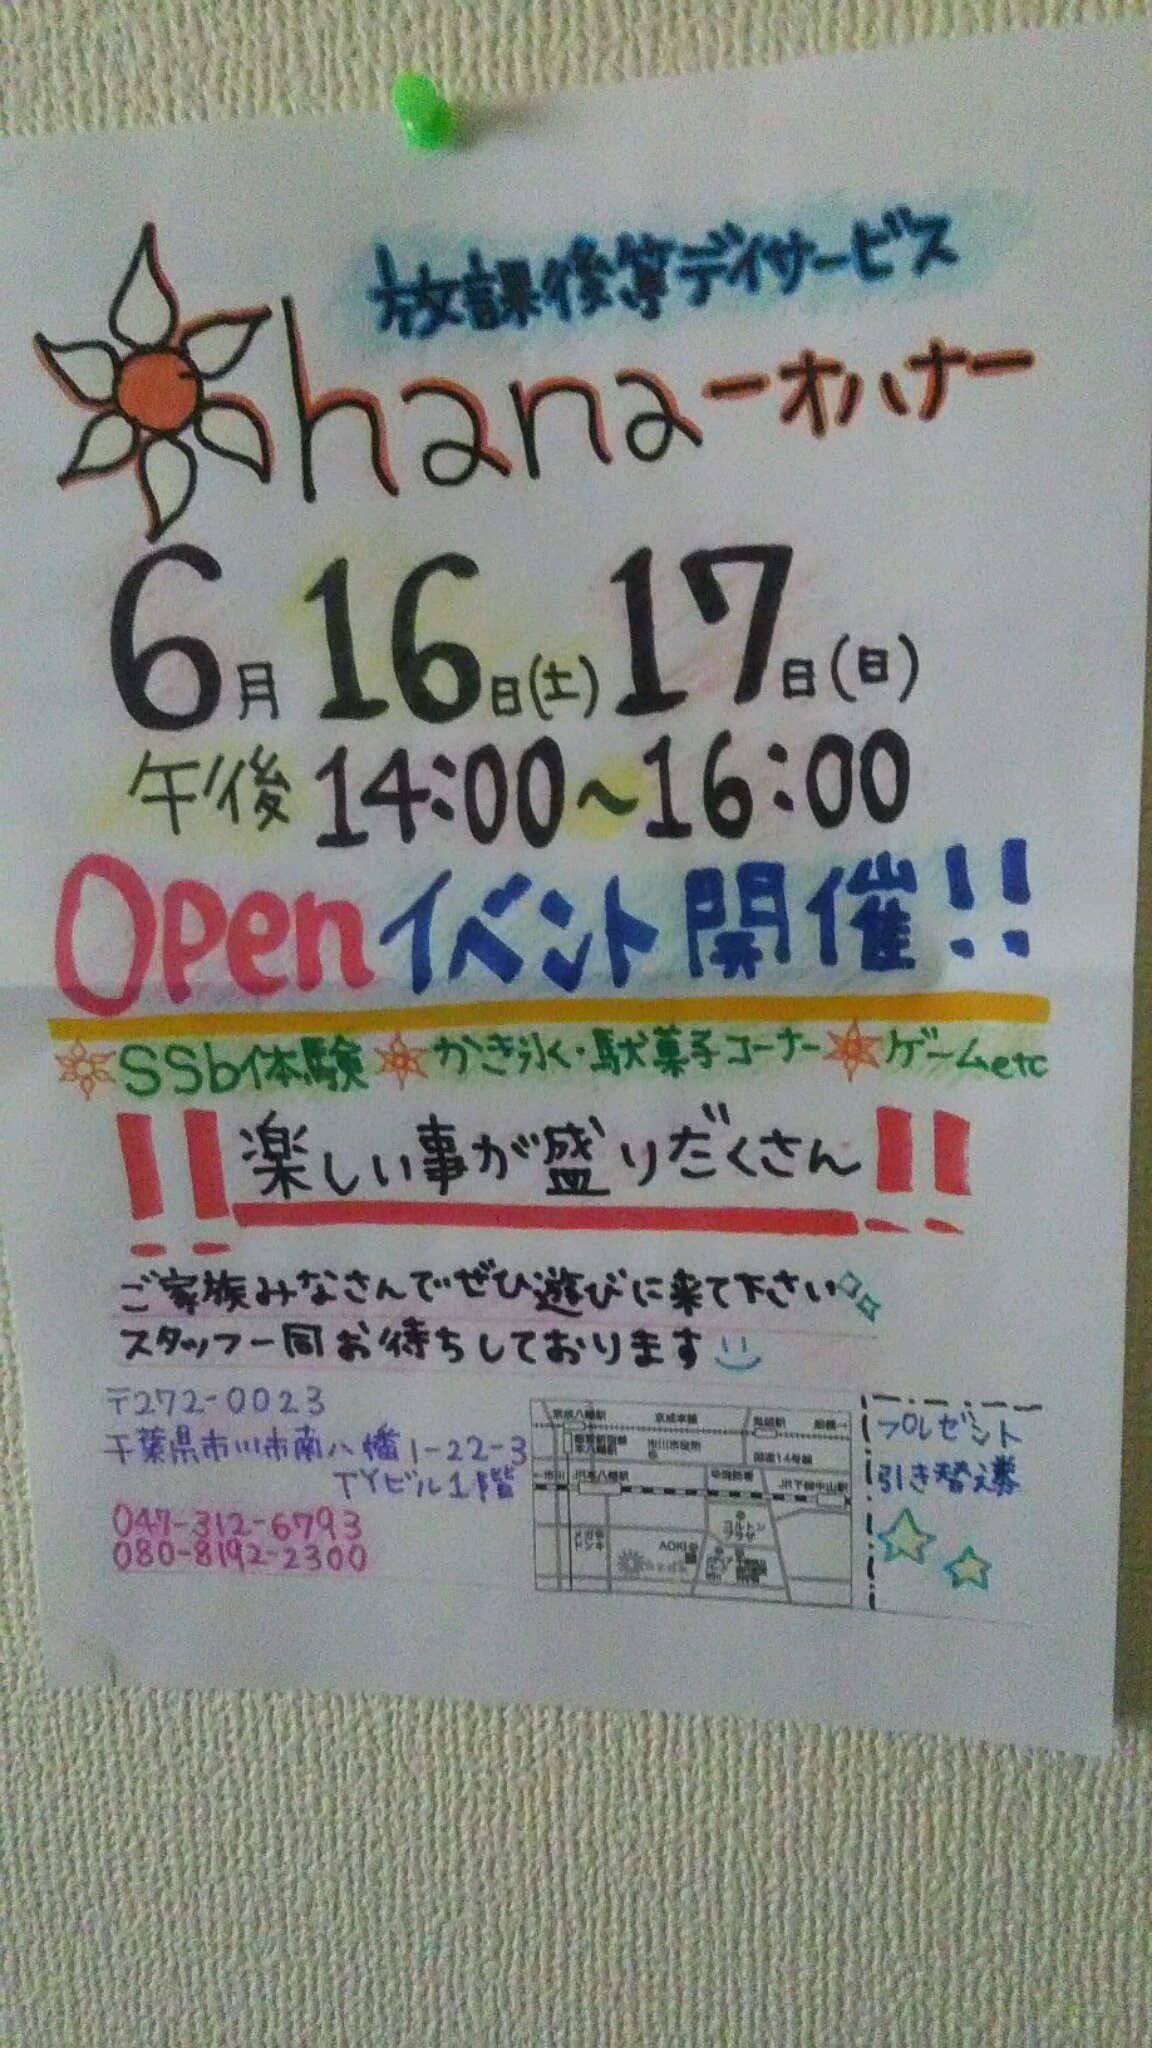 放課後等デイサービス
Ohana ーオハナー
6月16日(土)17日(日)
午後14:00~16:00
Openイベント開催!!
SSb体験 かき氷・駄菓子コーナー ゲームetc
!!楽しい事が盛りだくさん!!
ご家族みなさんでぜひ遊びに来て下さい
スタッフ一同お待ちしております
〒272-0023
千葉県市川市南八幡1-22-3
TYビル1階
047-312-6793
080-8192-2300
京成八幡駅 京成本線 鬼越駅 船橋→
本八幡駅 市川市役所 国道14号線
←市川 JR本八幡駅 消防署 JR下総中山駅
メガドンキ
コルトンプラザ
AOKI
プレゼント
引き替え券